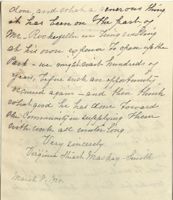 done, and what a generous thing
it has been on the part of
Mr. Rockefeller in being willing
at his own expense to open up the
Park - we might wait hundreds of
years, before such an opportunity
occurred again - and then think
what good he has done toward
the Community in supplying them
with work all winter long.
Very sincerely
Virginia
March 9,